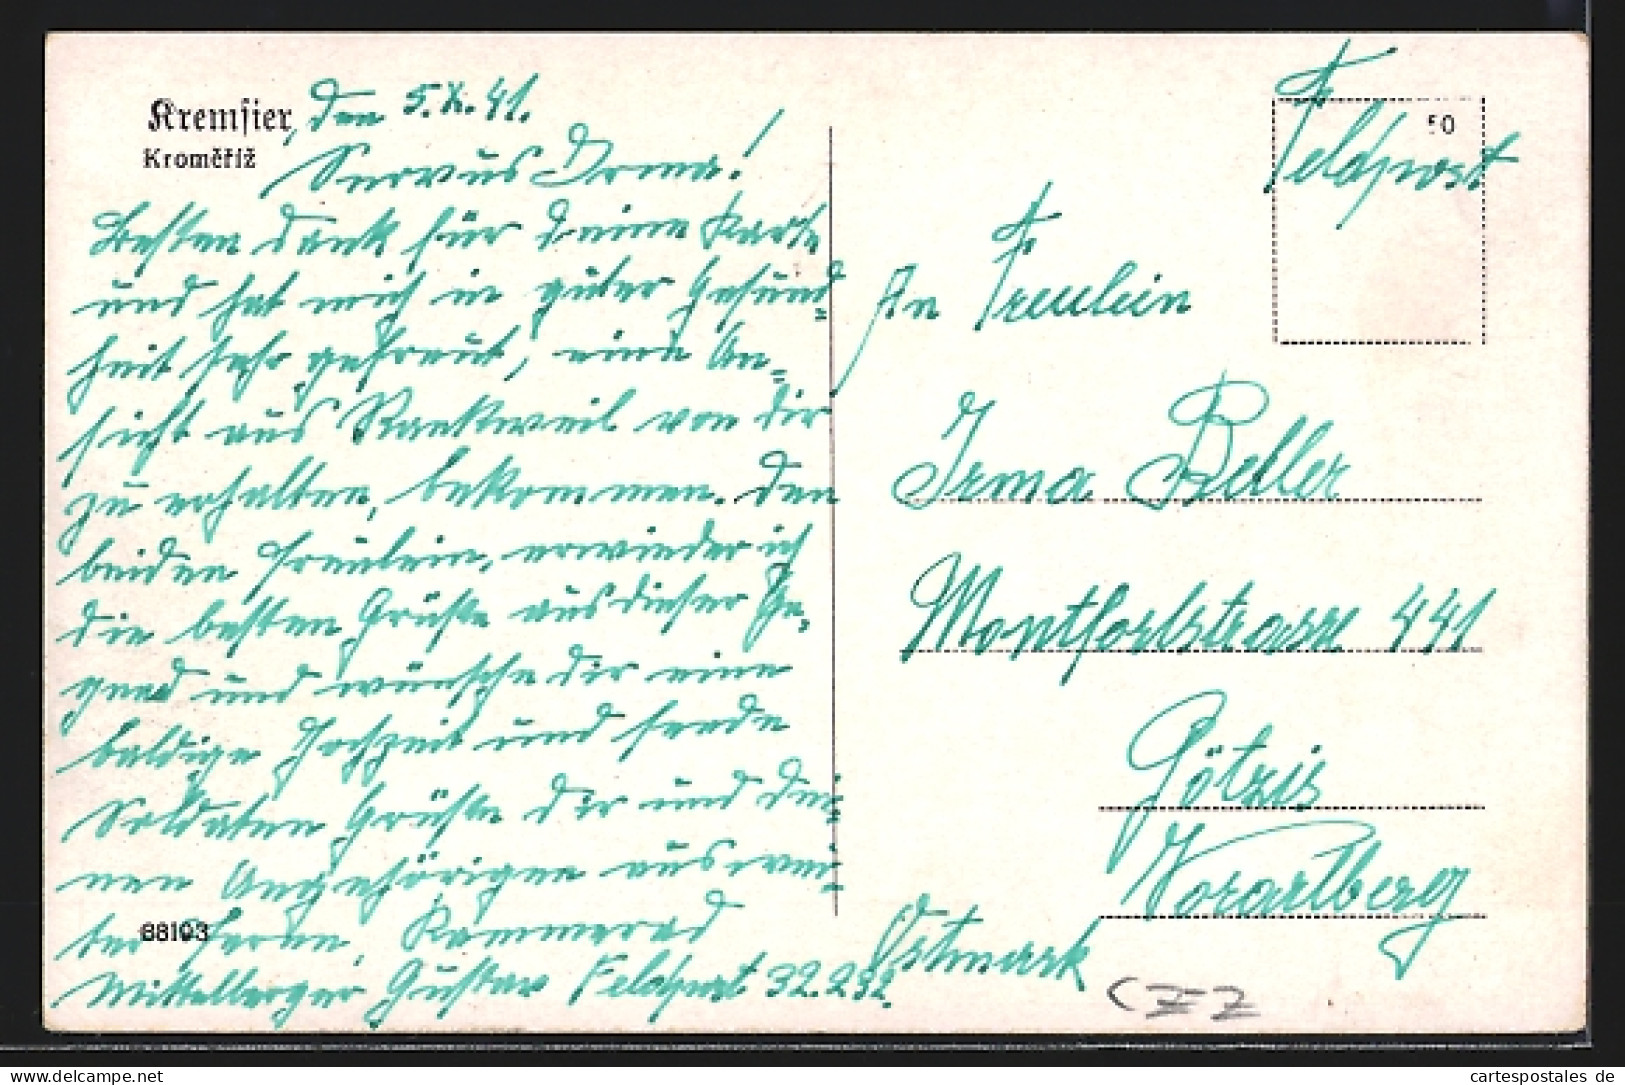 Kremsier, den 5.X.41.
Kroměříž
Servus Irma!
Besten dank für Deine Karte
und hat mich in guter Gesund=
heit sehr gefreut, eine An=
sicht aus Rankweil von dir
zu erhalten, bekommen. Den
beiden Freulein, erwieder ich
die besten Grüße aus dieser Ge,
gned und wünsche dir eine
baldige Hochzeit und sende
Soldaten Grüße dir und dei=
nen Angehörigen aus wei=
ter Ferne, Kammerad
Mittelberger Gustav Feldpost 32.292.
88103
50
Feldpost
An Freulein
Irma Beller
Montfortstrasse 441
Götzis
Vorarlberg
Ostmark
CZZ
www.delcampe.net
cartespostales de